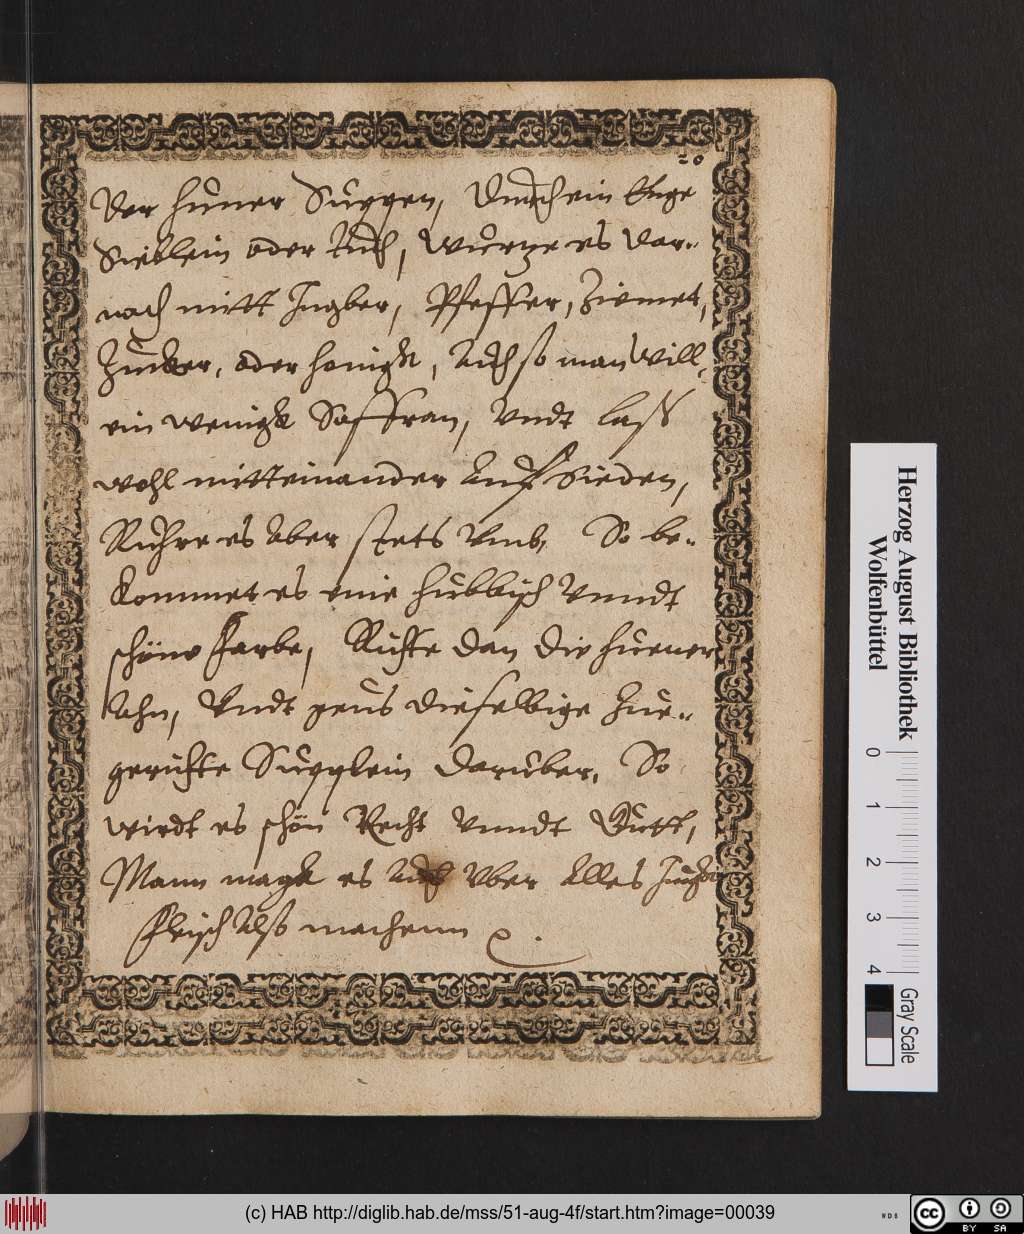 20
Der hüner Suppen, Durch ein Enge
Sieblein oder tuch, würtze es dar-
nach mitt Ingber, Pfeffer, Zimmet,
Zucker, oder honigk, Auch so man will,
ein wenigk Saffran, Undt laß
wohl mitteinander Auf Sieden,
Rühre es Aber stets Umb, So be-
kommet es eine hübbsch Unndt
schöne farbe, Richte dan die hüener
Ahn, Undt geus dieselbige Zue-
gerichte Süpplein darüber, So
wirdt es schön Recht Unndt Gutt,
Mann magk es Auch Uber Alles
fleisch Also machenn
Herzog August Bibliothek
Wolfenbüttel
0 1 2 3 4
Gray Scale
(c) HAB http://diglib.hab.de/mss/51-aug-4f/start.htm?image=00039
WDB
cc BY SA